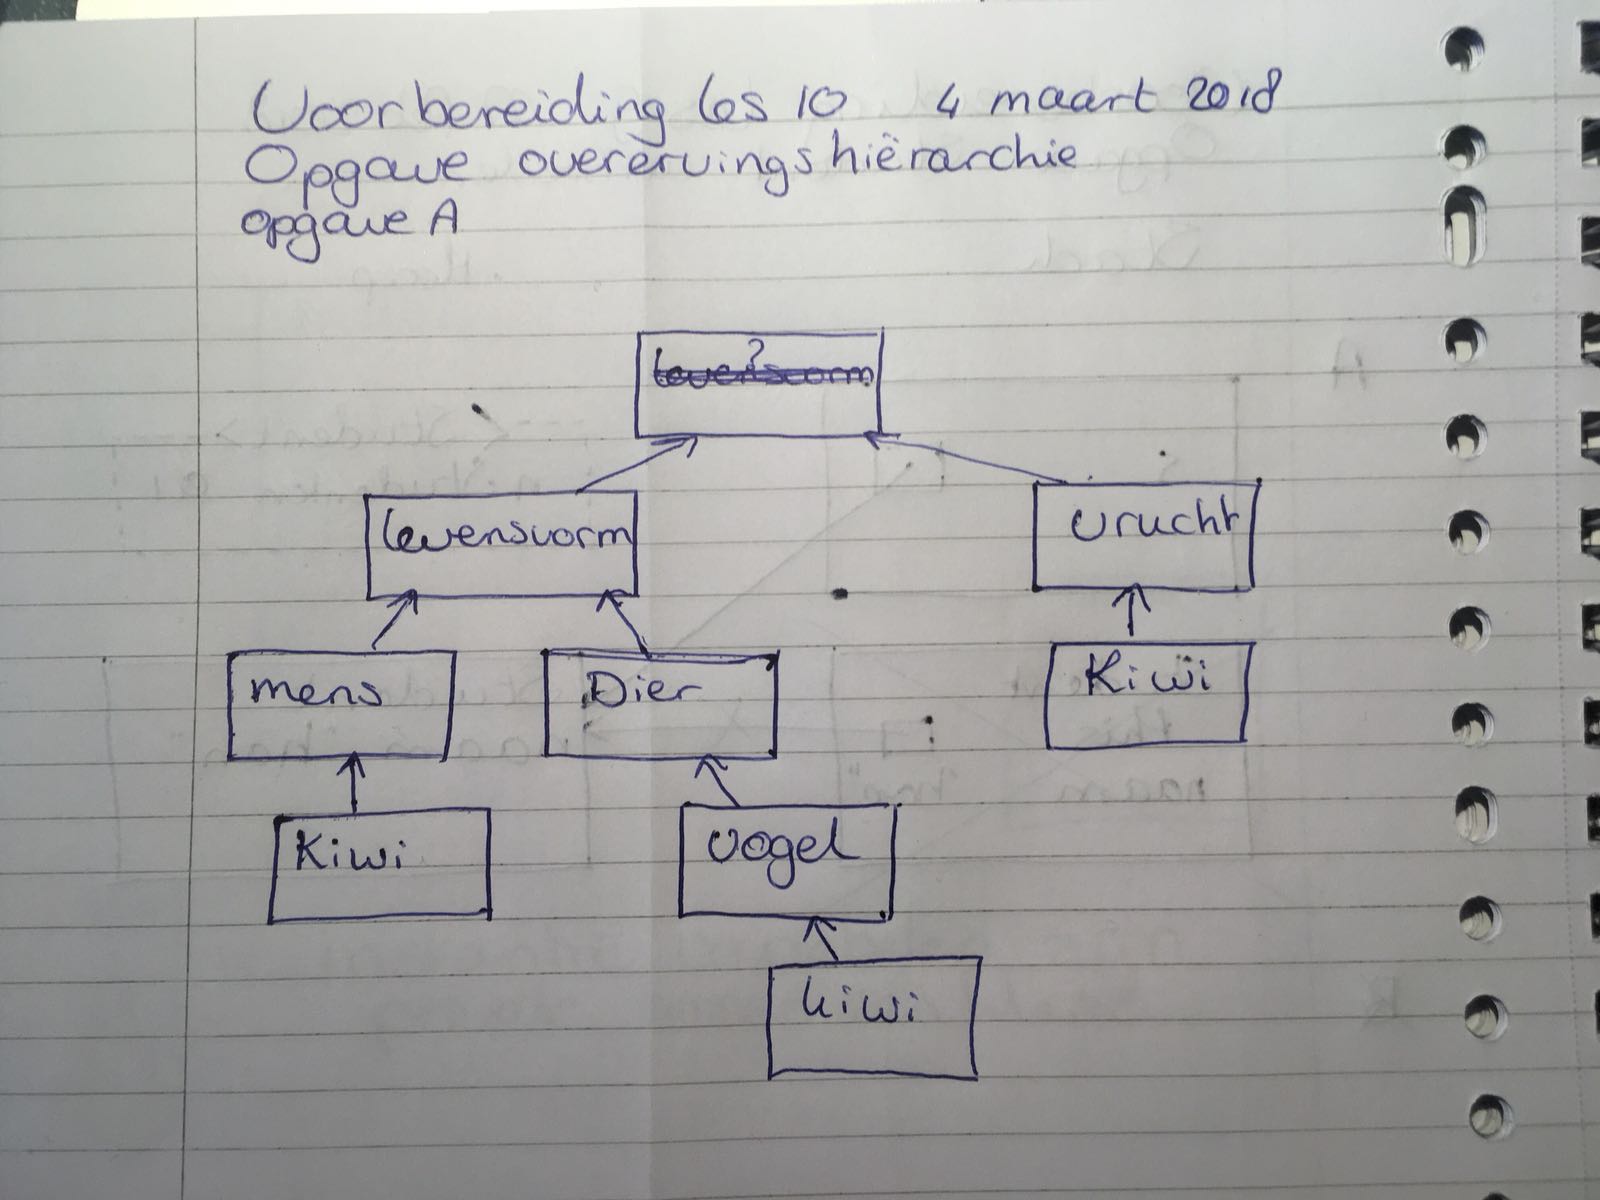 Voorbereiding les 10 4 maart 2018
Opgave overervingshiërarchie
opgave A
?
levensvorm
levensvorm
vrucht
mens
Dier
Kiwi
Kiwi
vogel
kiwi